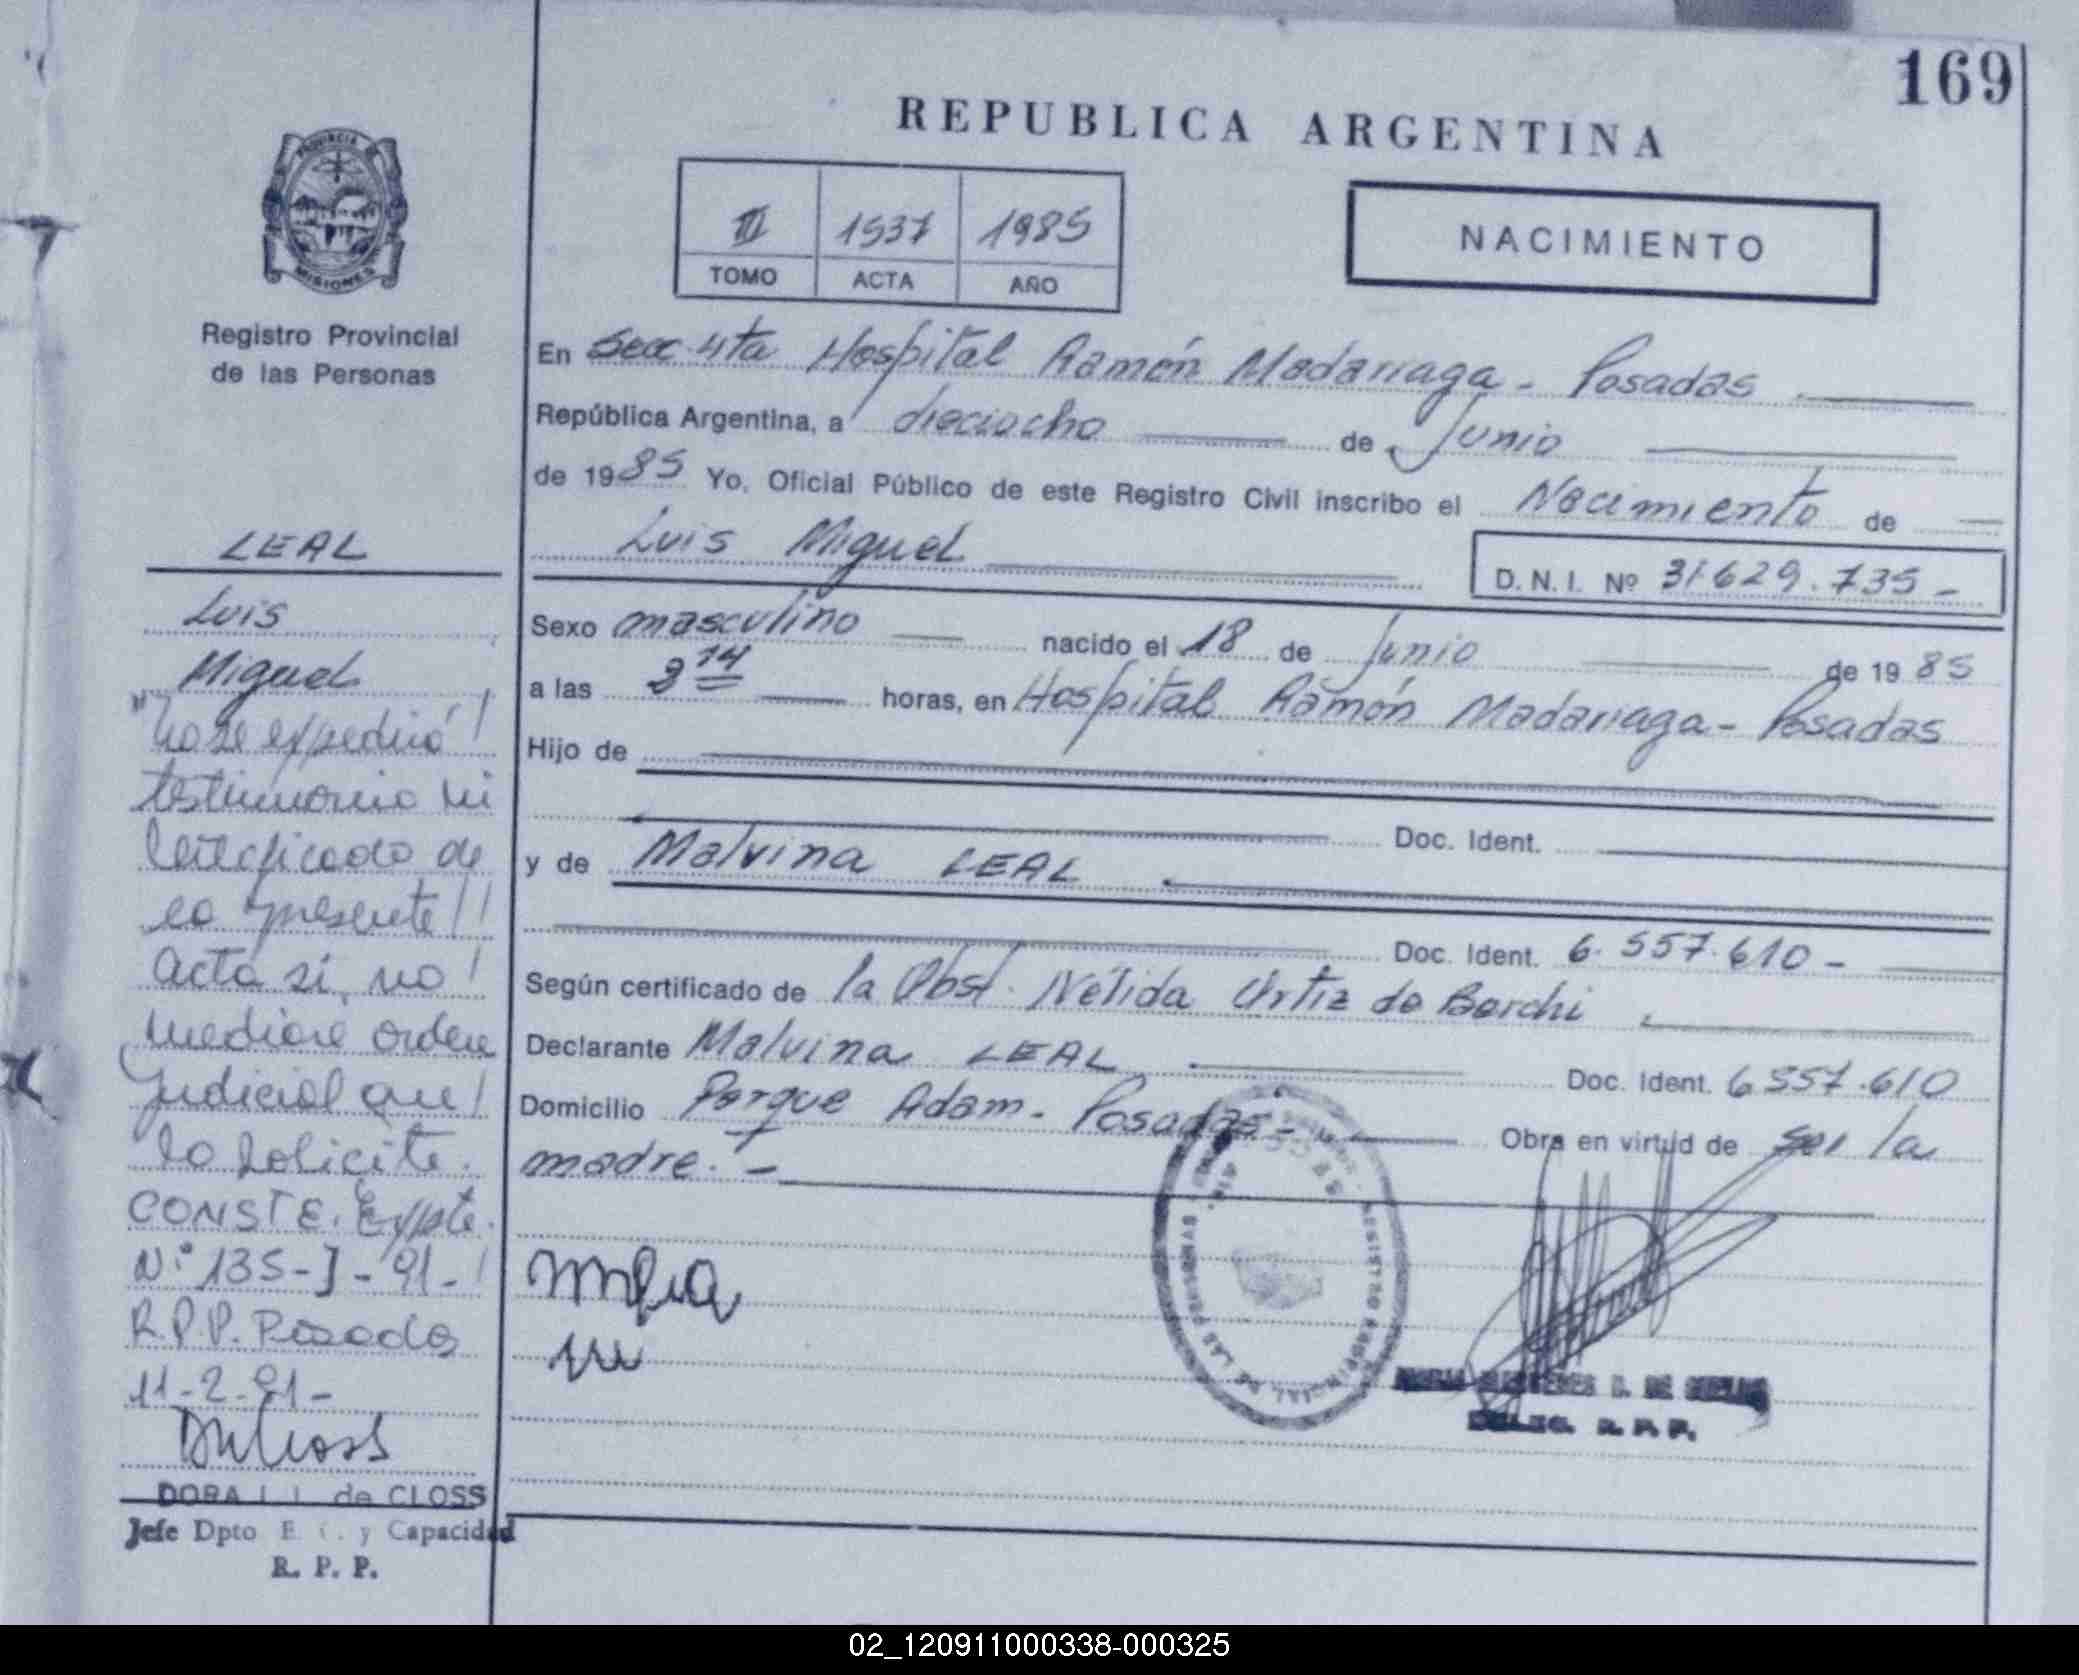 169
REPUBLICA ARGENTINA
PROVINCIA DE
MISIONES
Registro Provincial
de las Personas
III 1537 1985
TOMO ACTA AÑO
NACIMIENTO
En Secc. 4ta Hospital Ramón Madariaga - Posadas
República Argentina, a dieciocho de Junio
de 1985 Yo, Oficial Público de este Registro Civil inscribo el Nacimiento de
Luis Miguel
D. N. I. Nº 31.629.735 -
Sexo masculino nacido el 18 de Junio de 1985
a las 3 14 horas, en Hospital Ramón Madariaga - Posadas
Hijo de
Doc. Ident.
y de Malvina LEAL
Doc. Ident. 6.557.610 -
Según certificado de la Obst. Nélida Ortiz de Borchi
Declarante Malvina LEAL Doc. Ident. 6557.610
Domicilio Parque Adam. Posadas - Obra en virtud de ser la
madre. -
LEAL
Luis
Miguel
"No se expedirá
testimonio ni
certificado de
la presente
acta si no
mediare orden
judicial que
lo solicite.
CONSTE. Expte.
Nº 135-J-91-
R.P.P. Posadas
11-2-91-
DORA de CLOSS
Jefe Dpto E. C. y Capacidad
R. P. P.
REGISTRO PROVINCIAL DE LAS PERSONAS
DELEG. R. P. P.
02_120911000338-000325